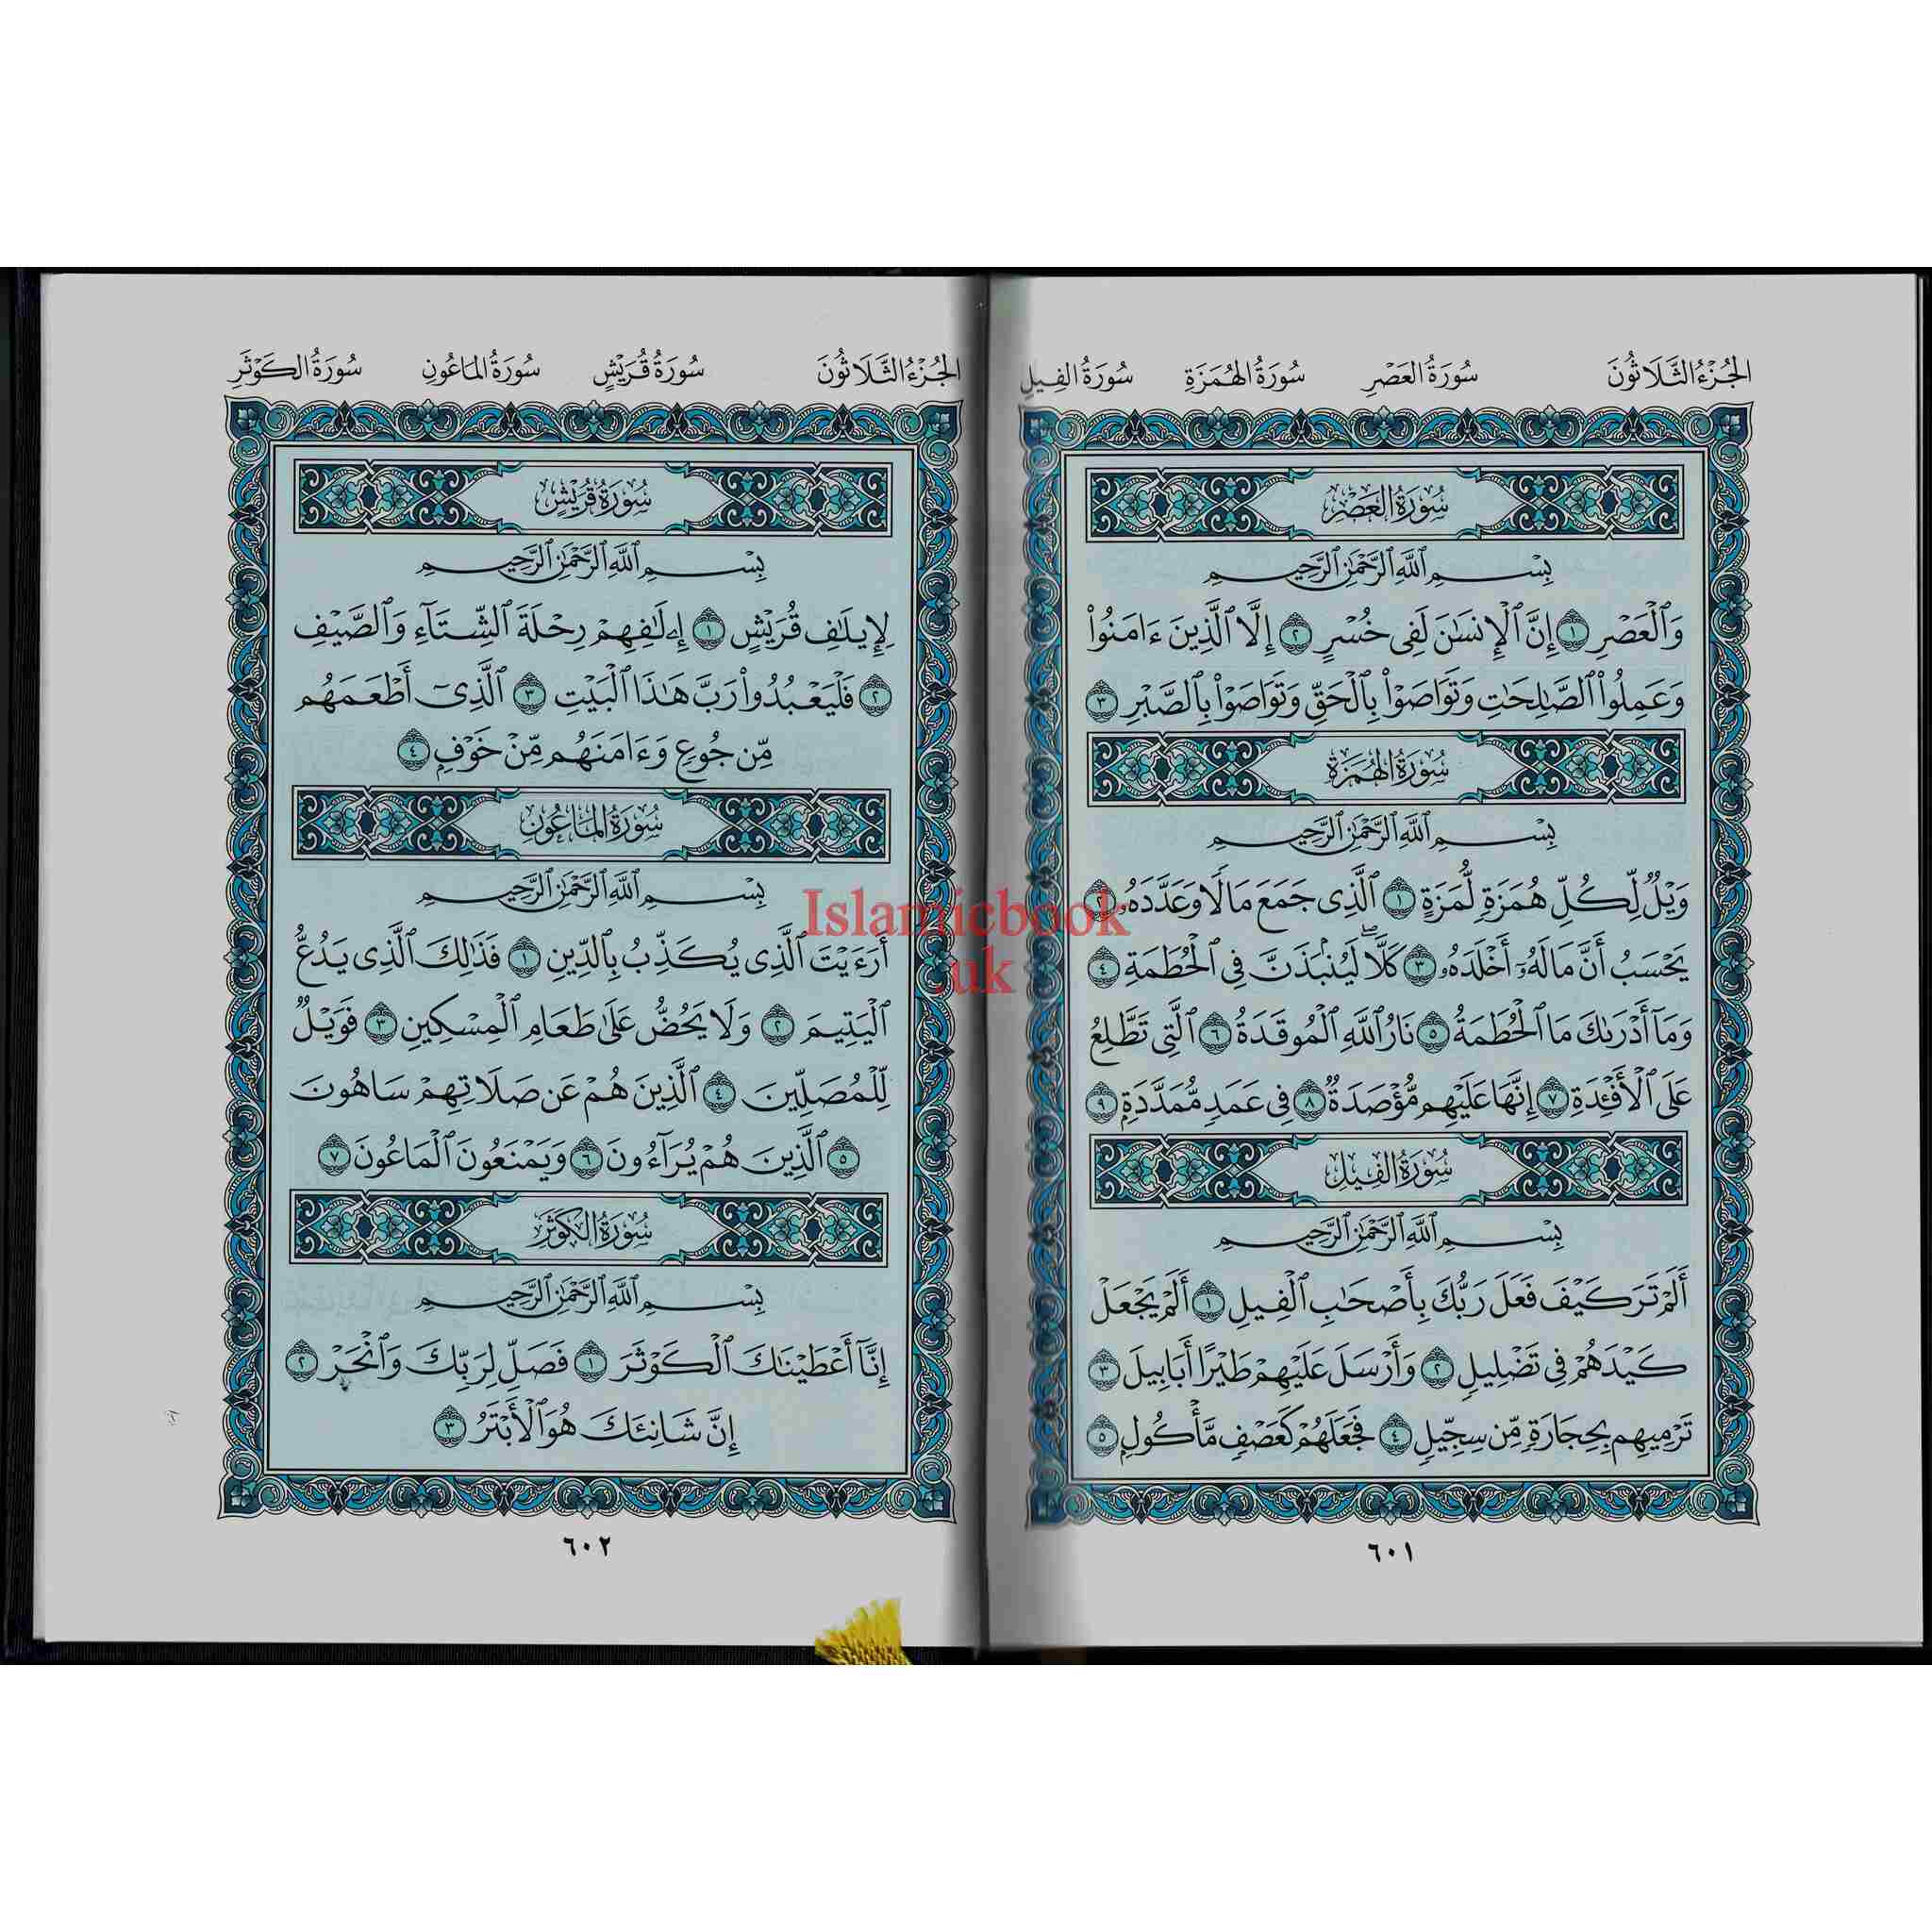 الجُزْءُ الثَّلَاثُونَ سُورَةُ العَصْرِ سُورَةُ الهُمَزَةِ سُورَةُ الفِيلِ
سُورَةُ العَصْرِ
بِسْمِ ٱللَّهِ ٱلرَّحْمَٰنِ ٱلرَّحِيمِ
وَٱلْعَصْرِ ١ إِنَّ ٱلْإِنسَٰنَ لَفِى خُسْرٍ ٢ إِلَّا ٱلَّذِينَ ءَامَنُوا۟
وَعَمِلُوا۟ ٱلصَّٰلِحَٰتِ وَتَوَاصَوْا۟ بِٱلْحَقِّ وَتَوَاصَوْا۟ بِٱلصَّبْرِ ٣
سُورَةُ الهُمَزَةِ
بِسْمِ ٱللَّهِ ٱلرَّحْمَٰنِ ٱلرَّحِيمِ
وَيْلٌ لِّكُلِّ هُمَزَةٍ لُّمَزَةٍ ١ ٱلَّذِى جَمَعَ مَالًا وَعَدَّدَهُۥ ٢
يَحْسَبُ أَنَّ مَالَهُۥٓ أَخْلَدَهُۥ ٣ كَلَّا ۖ لَيُنۢبَذَنَّ فِى ٱلْحُطَمَةِ ٤
وَمَآ أَدْرَىٰكَ مَا ٱلْحُطَمَةُ ٥ نَارُ ٱللَّهِ ٱلْمُوقَدَةُ ٦ ٱلَّتِى تَطَّلِعُ
عَلَى ٱلْأَفْـِٔدَةِ ٧ إِنَّهَا عَلَيْهِم مُّؤْصَدَةٌ ٨ فِى عَمَدٍ مُّمَدَّدَةٍ ٩
سُورَةُ الفِيلِ
بِسْمِ ٱللَّهِ ٱلرَّحْمَٰنِ ٱلرَّحِيمِ
أَلَمْ تَرَ كَيْفَ فَعَلَ رَبُّكَ بِأَصْحَٰبِ ٱلْفِيلِ ١ أَلَمْ يَجْعَلْ
كَيْدَهُمْ فِى تَضْلِيلٍ ٢ وَأَرْسَلَ عَلَيْهِمْ طَيْرًا أَبَابِيلَ ٣
تَرْمِيهِم بِحِجَارَةٍ مِّن سِجِّيلٍ ٤ فَجَعَلَهُمْ كَعَصْفٍ مَّأْكُولٍ ٥
٦٠١
الجُزْءُ الثَّلَاثُونَ سُورَةُ قُرَيْشٍ سُورَةُ المَاعُونِ سُورَةُ الكَوْثَرِ
سُورَةُ قُرَيْشٍ
بِسْمِ ٱللَّهِ ٱلرَّحْمَٰنِ ٱلرَّحِيمِ
لِإِيلَٰفِ قُرَيْشٍ ١ إِۦلَٰفِهِمْ رِحْلَةَ ٱلشِّتَآءِ وَٱلصَّيْفِ
٢ فَلْيَعْبُدُوا۟ رَبَّ هَٰذَا ٱلْبَيْتِ ٣ ٱلَّذِىٓ أَطْعَمَهُم
مِّن جُوعٍ وَءَامَنَهُم مِّنْ خَوْفٍ ٤
سُورَةُ المَاعُونِ
بِسْمِ ٱللَّهِ ٱلرَّحْمَٰنِ ٱلرَّحِيمِ
أَرَءَيْتَ ٱلَّذِى يُكَذِّبُ بِٱلدِّينِ ١ فَذَٰلِكَ ٱلَّذِى يَدُعُّ
ٱلْيَتِيمَ ٢ وَلَا يَحُضُّ عَلَىٰ طَعَامِ ٱلْمِسْكِينِ ٣ فَوَيْلٌ
لِّلْمُصَلِّينَ ٤ ٱلَّذِينَ هُمْ عَن صَلَاتِهِمْ سَاهُونَ
٥ ٱلَّذِينَ هُمْ يُرَآءُونَ ٦ وَيَمْنَعُونَ ٱلْمَاعُونَ ٧
سُورَةُ الكَوْثَرِ
بِسْمِ ٱللَّهِ ٱلرَّحْمَٰنِ ٱلرَّحِيمِ
إِنَّآ أَعْطَيْنَٰكَ ٱلْكَوْثَرَ ١ فَصَلِّ لِرَبِّكَ وَٱنْحَرْ ٢
إِنَّ شَانِئَكَ هُوَ ٱلْأَبْتَرُ ٣
٦٠٢
Islamicbook
.uk